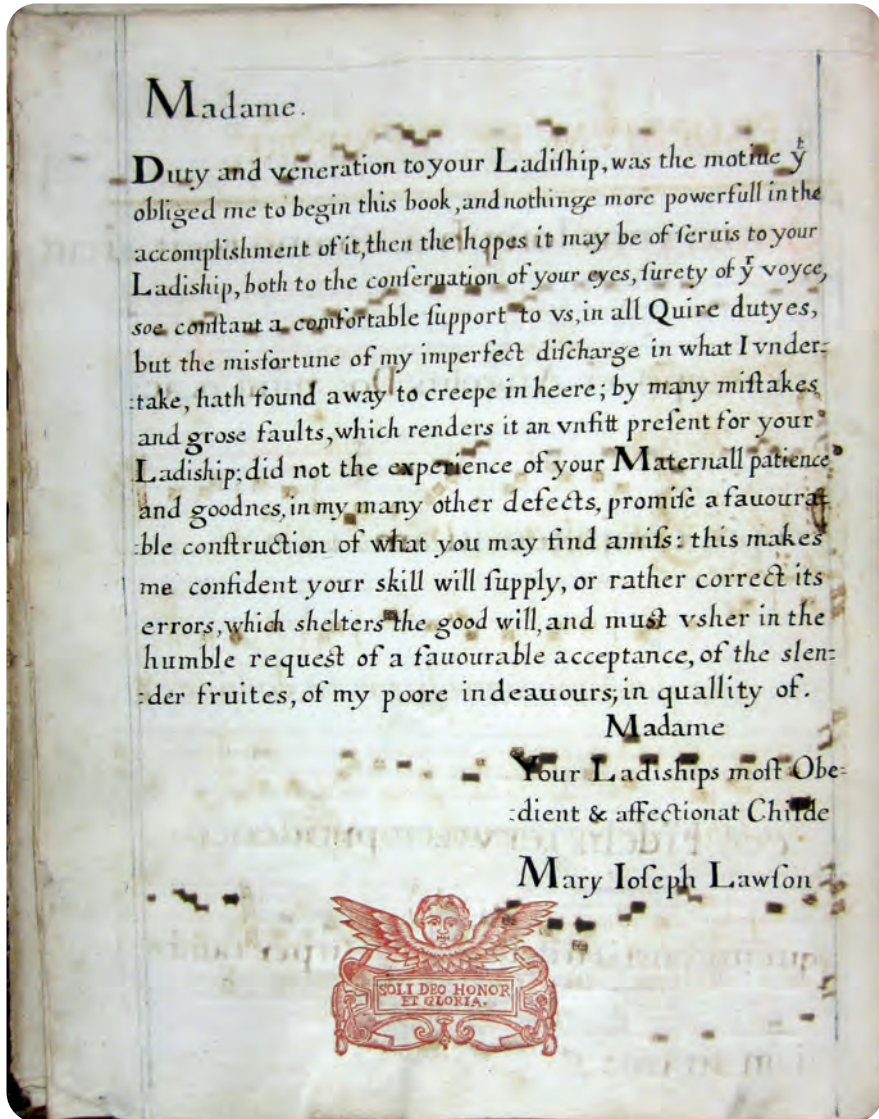 Madame.
Duty and veneration to your Ladiſhip, was the motiue yͭ
obliged me to begin this book, and nothinge more powerfull in the
accomplishment of it, then the hopes it may be of ſeruis to your
Ladiship, both to the conſeruation of your eyes, ſurety of yͬ voyce,
soe conſtant a comfortable ſupport to vs, in all Quire dutyes,
but the misfortune of my imperfect diſcharge in what I vnder:
:take, hath found away to creepe in heere; by many miſtakes
and grose faults, which renders it an vnfitt preſent for your
Ladiship; did not the experience of your Maternall patience
and goodnes, in my many other defects, promiſe a fauoura:
:ble conſtruction of what you may find amiſs: this makes
me confident your skill will ſupply, or rather correct its
errors, which shelters the good will, and must vsher in the
humble request of a fauourable acceptance, of the slen:
:der fruites, of my poore indeauours; in quallity of.
Madame
Your Ladiships moſt Obe=
:dient & affectionat Childe
Mary Ioſeph Lawſon
SOLI DEO HONOR
ET GLORIA.